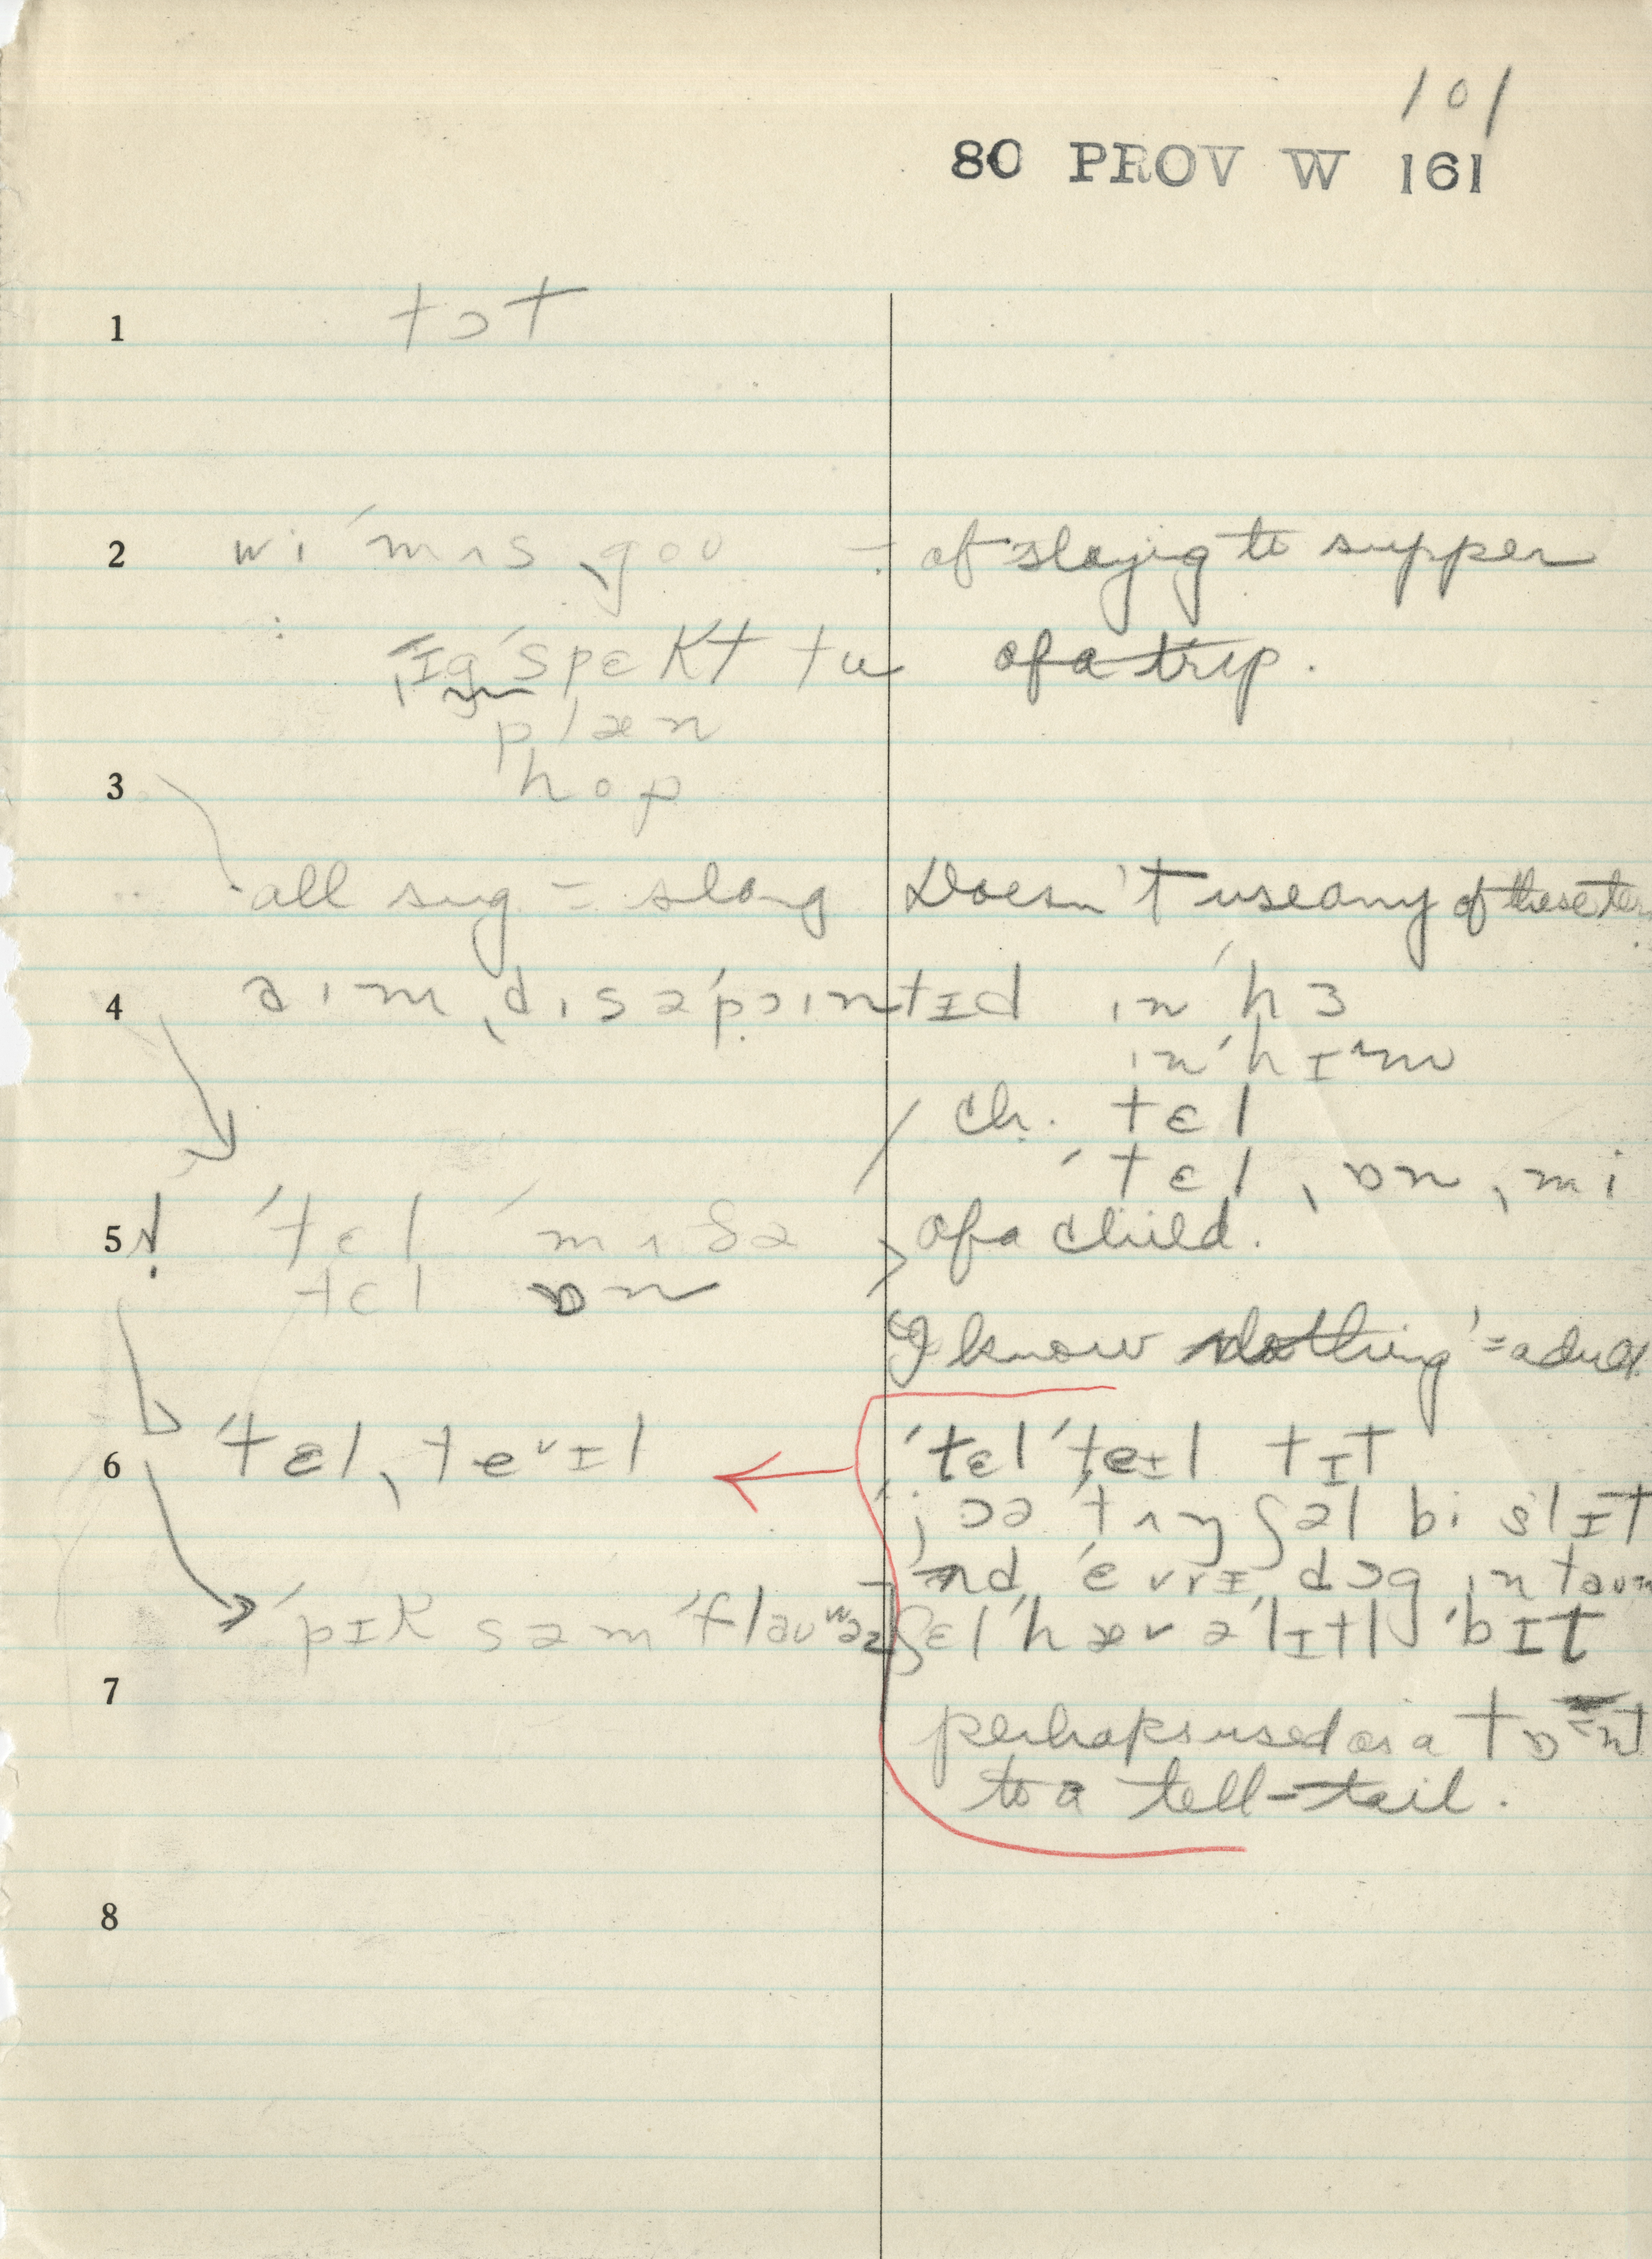 101
80 PROV W 161
1 tɔt
2 wi ˈmʌs ˌgoʊ – of staying to supper
ɪgˈspɛkt tu of a trip.
plæn
3 hop
all sug = slang Doesn't use any of these
4 aɪm ˌdɪsəˈpɔɪntɪd ɪn ˈhɜ
ɪn ˈhɪm
/ ch. tɛl
ˈtɛl ˌɒn ˌmi
5 ! ˈtɛl ˈmʌðə > of a child.
tɛl ɒn
"I know nothing" = adult
6 ˈtɛl ˌteɪl ˈtɛl ˈteɪl tɪt
jɔə ˈtʌŋ ʃəl bi slɪt
nd ˈɛvrɪ dɔg ɪn taun
ˈpɪk səm ˈflaʊʷəz ʃɛl ˈhæv ə ˈlɪtl ˈbɪt
7 perhaps used as a
to a tell-tail.
8